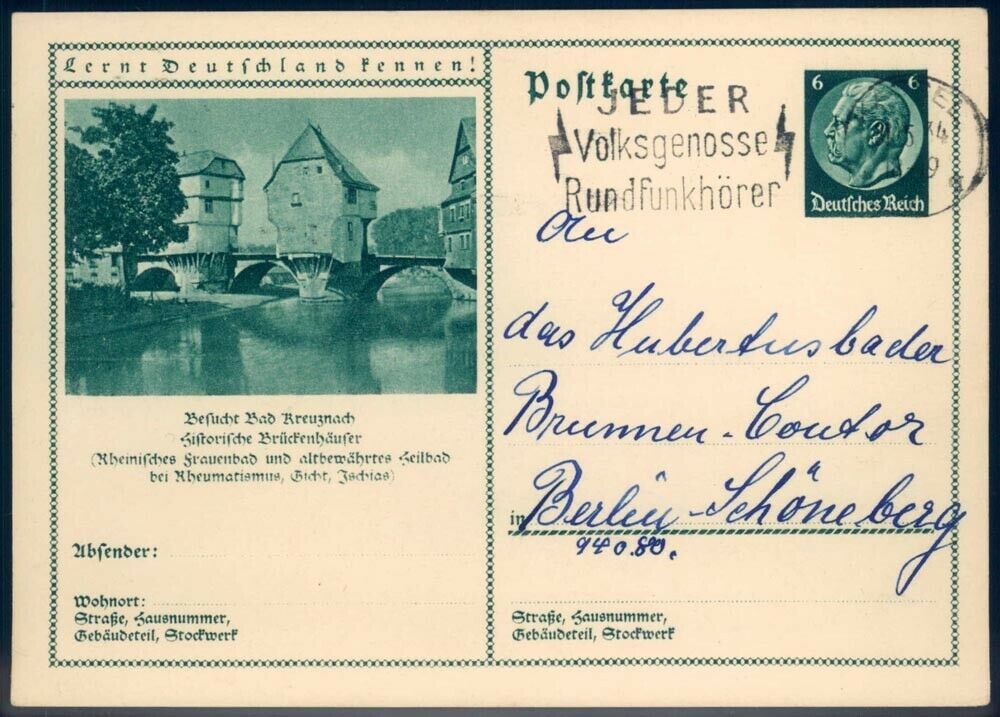 Lernt Deutschland kennen!
Besucht Bad Kreuznach
Historische Brückenhäuser
(Rheinisches Frauenbad und altbewährtes Heilbad
bei Rheumatismus, Gicht, Ischias)
Absender:
Wohnort:
Straße, Hausnummer,
Gebäudeteil, Stockwerk
Postkarte
JEDER
Volksgenosse
Rundfunkhörer
6 6
Deutsches Reich
An
das Hubertusbader
Brunnen-Contor
in Berlin-Schöneberg
Straße, Hausnummer,
Gebäudeteil, Stockwerk